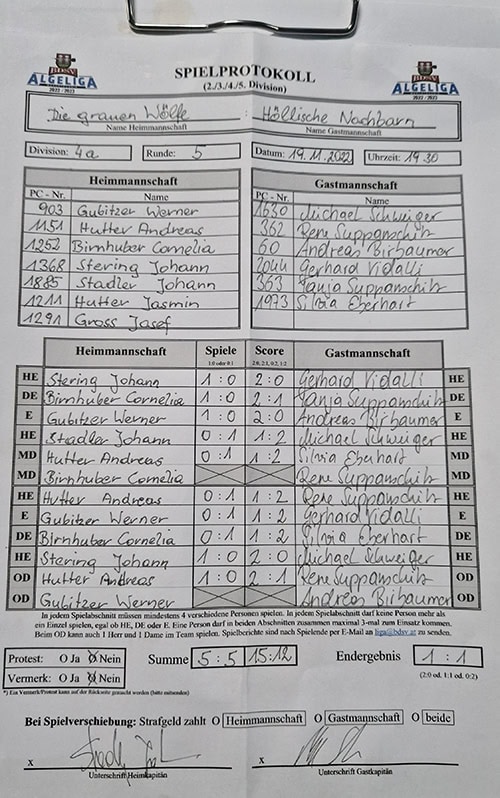 BDSV
ALGELIGA
2022/2023
SPIELPROTOKOLL
(2./3./4./5. Division)
BDSV
ALGELIGA
2022/2023
Die grauen Wölfe : Höllische Nachbarn
Name Heimmannschaft Name Gastmannschaft
Division: 4a Runde: 5 Datum: 19.11.2022 Uhrzeit: 19 30
Heimmannschaft Gastmannschaft
PC - Nr. Name PC - Nr. Name
903 Gubitzer Werner 1630 Michael Schweiger
1151 Hutter Andreas 362 Rene Suppanschitz
1252 Birnhuber Cornelia 60 Andreas Birbaumer
1368 Stering Johann 2044 Gerhard Vidalli
1885 Stadler Johann 363 Tanja Suppanschitz
1211 Hutter Jasmin 1973 Silvia Eberhart
1291 Gross Josef
Heimmannschaft Spiele Score Gastmannschaft
1:0 oder 0:1 2:0, 2:1, 0:2, 1:2
HE Stering Johann 1:0 2:0 Gerhard Vidalli HE
DE Birnhuber Cornelia 1:0 2:1 Tanja Suppanschitz DE
E Gubitzer Werner 1:0 2:0 Andreas Birbaumer E
HE Stadler Johann 0:1 1:2 Michael Schweiger HE
MD Hutter Andreas 0:1 1:2 Silvia Eberhart MD
MD Birnhuber Cornelia Rene Suppanschitz MD
HE Hutter Andreas 0:1 1:2 Rene Suppanschitz HE
E Gubitzer Werner 0:1 1:2 Gerhard Vidalli E
DE Birnhuber Cornelia 0:1 1:2 Silvia Eberhart DE
HE Stering Johann 1:0 2:0 Michael Schweiger HE
OD Hutter Andreas 1:0 2:1 Rene Suppanschitz OD
OD Gubitzer Werner Andreas Birbaumer OD
In jedem Spielabschnitt müssen mindestens 4 verschiedene Personen spielen. In jedem Spielabschnitt darf keine Person mehr als
ein Einzel spielen, egal ob HE, DE oder E. Eine Person darf in beiden Abschnitten zusammen maximal 3-mal zum Einsatz kommen.
Beim OD kann auch 1 Herr und 1 Dame im Team spielen. Spielberichte sind nach Spielende per E-Mail an liga@bdsv.at zu senden.
Protest: O Ja O Nein Summe 5:5 15:12 Endergebnis 1:1
Vermerk: O Ja O Nein (2:0 od. 1:1 od. 0:2)
*) Ein Vermerk/Protest kann auf der Rückseite gemacht werden (bitte unterschreiben)
Bei Spielverschiebung: Strafgeld zahlt O Heimmannschaft O Gastmannschaft O beide
x x
Unterschrift Heimkapitän Unterschrift Gastkapitän